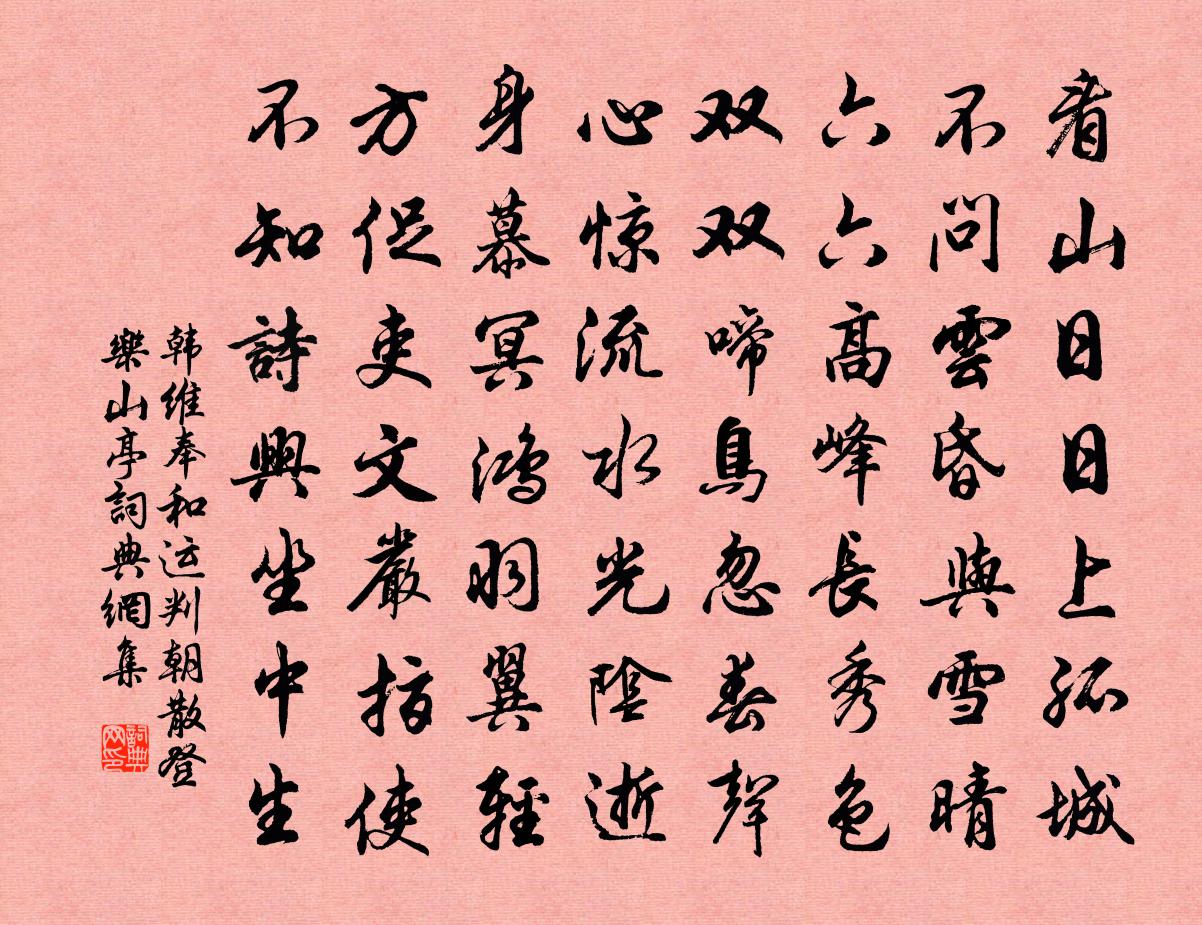 看山日日上孤城
不問雲昏與雪晴
六六高峰長秀色
双双啼鳥忽春聲
心惊流水光陰逝
身慕冥鴻羽翼輕
方促吏文嚴指使
不知詩興坐中生
韩維奉和运判朝散登
樂山亭詞典網集
詞典网印